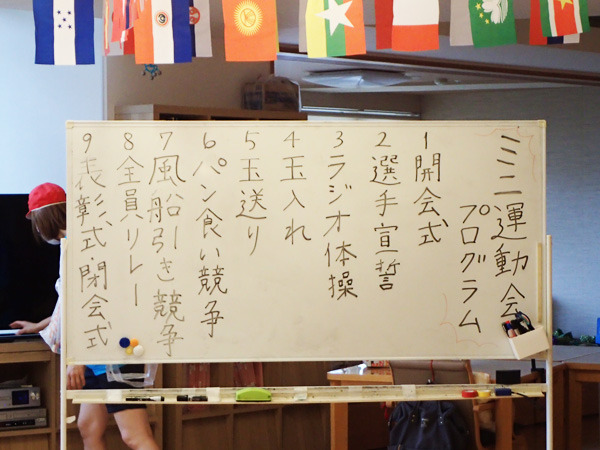 ミニ運動会
プログラム
1 開会式
2 選手宣誓
3 ラジオ体操
4 玉入れ
5 玉送り
6 パン食い競争
7 風船引き競争
8 全員リレー
9 表彰式・閉会式